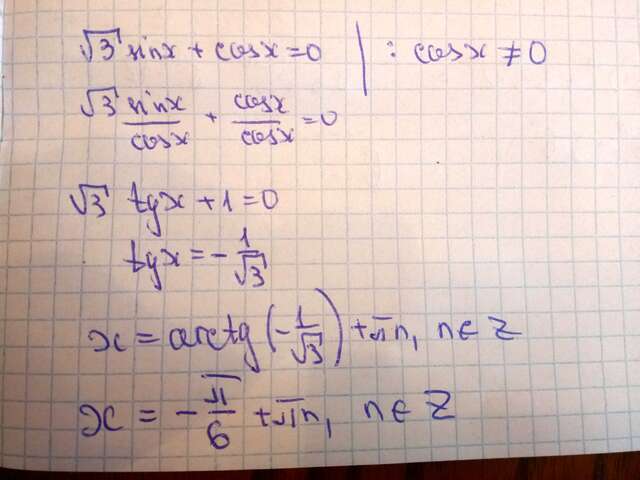 √3 sinx + cosx = 0 | : cosx ≠ 0
√3 sinx/cosx + cosx/cosx = 0
√3 tgx + 1 = 0
tgx = - 1/√3
x = arctg(-1/√3) + πn, n ∈ Z
x = - π/6 + πn, n ∈ Z